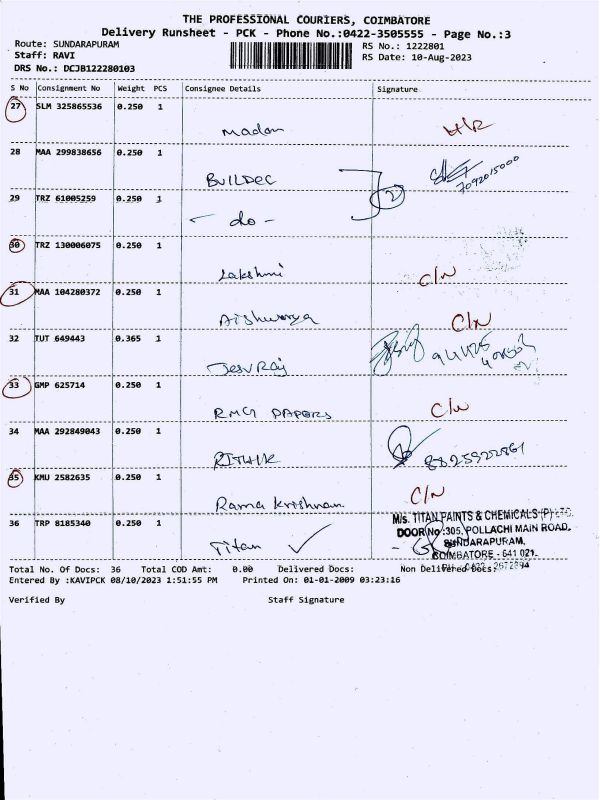 THE PROFESSIONAL COURIERS, COIMBATORE
Delivery Runsheet - PCK - Phone No.:0422-3505555 - Page No.:3
Route: SUNDARAPURAM RS No.: 1222801
Staff: RAVI RS Date: 10-Aug-2023
DRS No.: DCJB122280103
S No Consignment No Weight PCS Consignee Details Signature
27 SLM 325865536 0.250 1
Madan
28 MAA 299838656 0.250 1
BUILDEC 7092015000
29 TRZ 61005259 0.250 1 2
- do -
30 TRZ 130006075 0.250 1
Lakshmi C/N
31 MAA 104280372 0.250 1
Aishwarya C/N
32 TUT 649443 0.365 1
Jesuraj
33 GMP 625714 0.250 1
RMG PAPERS C/N
34 MAA 292849043 0.250 1
RITHIK 8825922861
35 KMU 2582635 0.250 1
Rama Krishnan C/N
36 TRP 8185340 0.250 1
Titan
M/s. TITAN PAINTS & CHEMICALS (P) LTD.
DOOR No :305, POLLACHI MAIN ROAD,
SUNDARAPURAM,
COIMBATORE - 641 021.
Total No. Of Docs: 36 Total COD Amt: 0.00 Delivered Docs: Non Delivered Docs:
Entered By :KAVIPCK 08/10/2023 1:51:55 PM Printed On: 01-01-2009 03:23:16
Verified By Staff Signature